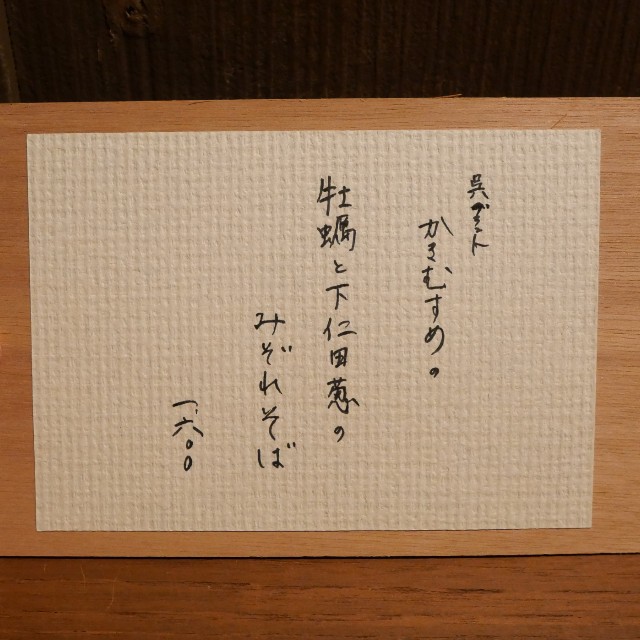 呉ダント
かきむすめの
牡蠣と下仁田葱の
みぞれそば
一、六〇〇